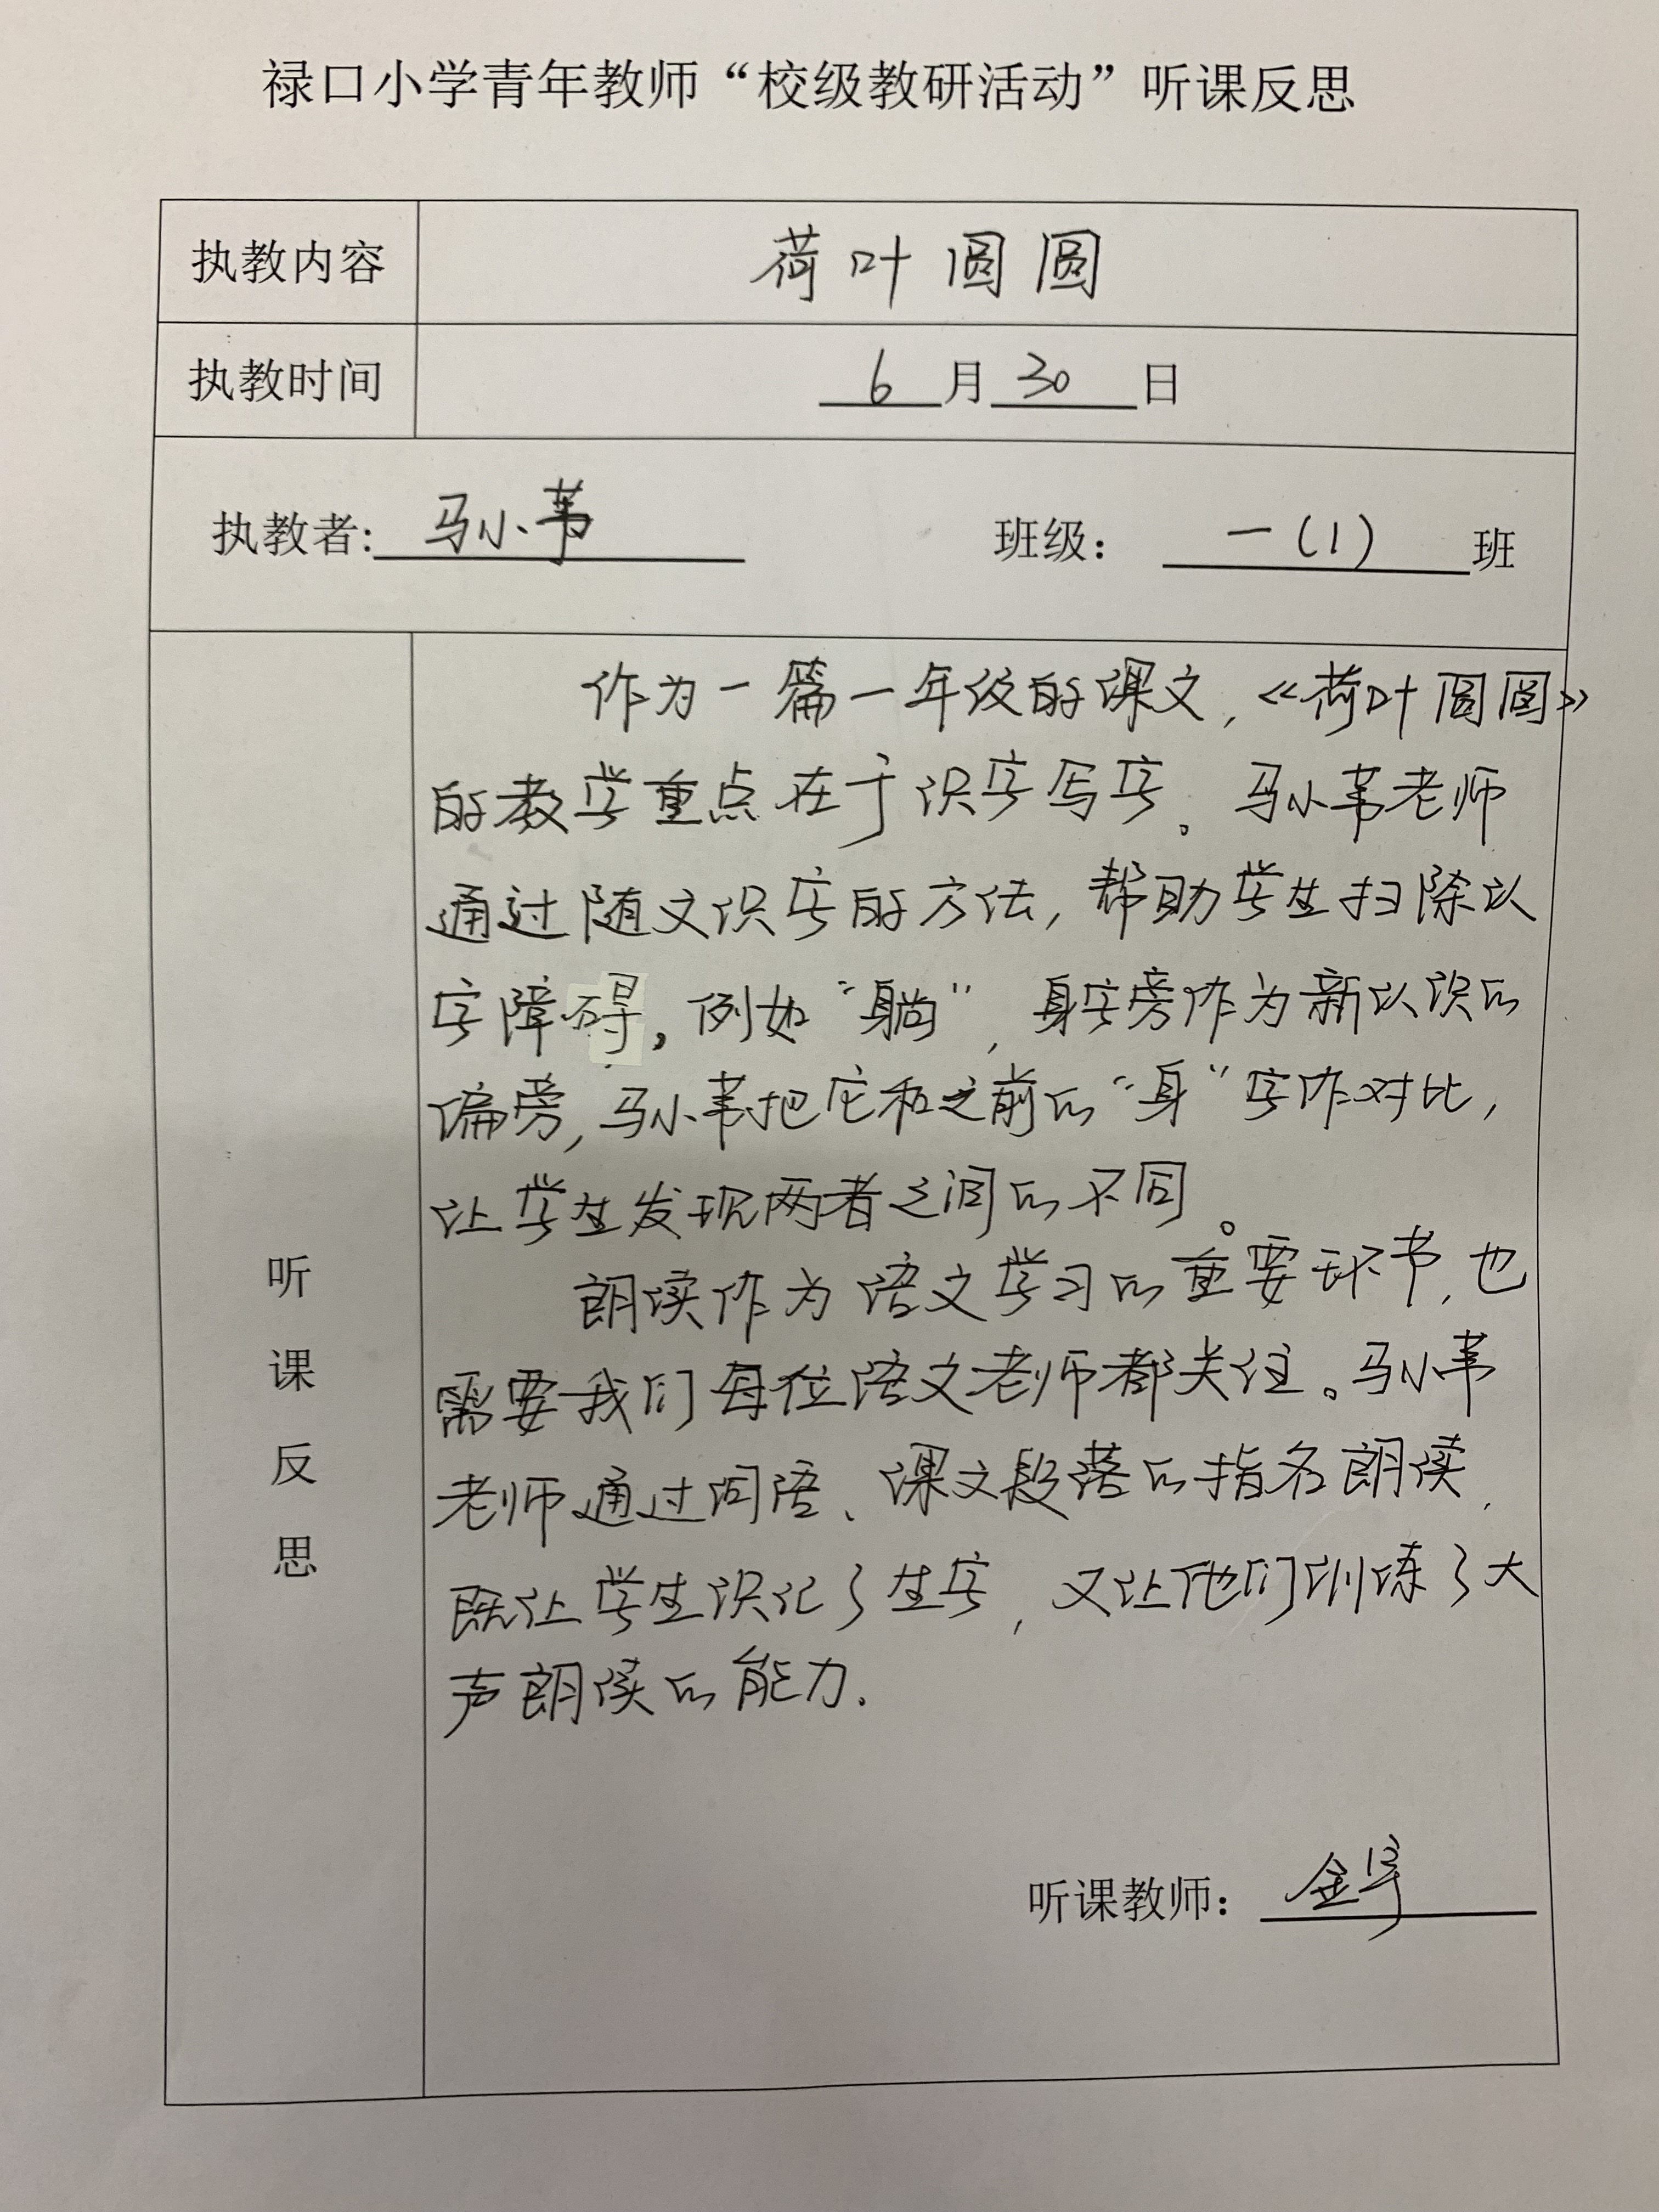 禄口小学青年教师“校级教研活动”听课反思
执教内容 荷叶圆圆
执教时间 6月30日
执教者: 马小苇 班级： 一(1)班
作为一篇一年级的课文，《荷叶圆圆》
的教学重点在于识字写字。马小苇老师
通过随文识字的方法，帮助学生扫除认
字障碍。例如“躺”，身字旁作为新认识的
偏旁，马小苇把它和之前的“身”字作对比，
让学生发现两者之间的不同。
朗读作为语文学习的重要环节，也
需要我们每位语文老师都关注。马小苇
老师通过词语、课文段落的指名朗读，
既让学生识记了生字，又让他们训练了大
声朗读的能力.
听课反思
听课教师： 金宇